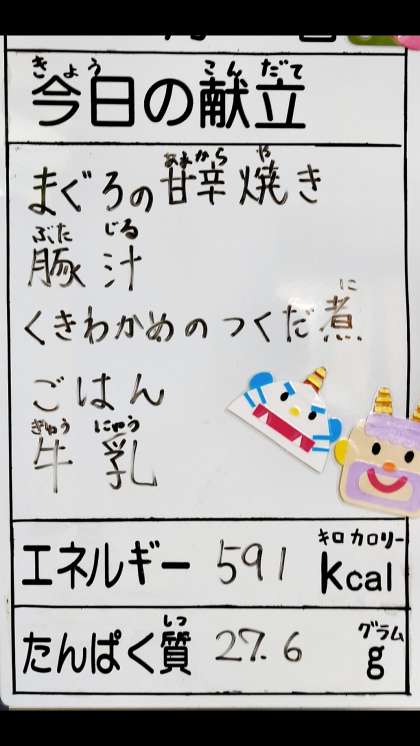 きょう こんだて
今日の献立
あまから や
まぐろの甘辛焼き
ぶた じる
豚汁
に
くきわかめのつくだ煮
ごはん
ぎゅう にゅう
牛乳
キロカロリー
エネルギー 591 kcal
しつ グラム
たんぱく質 27.6 g